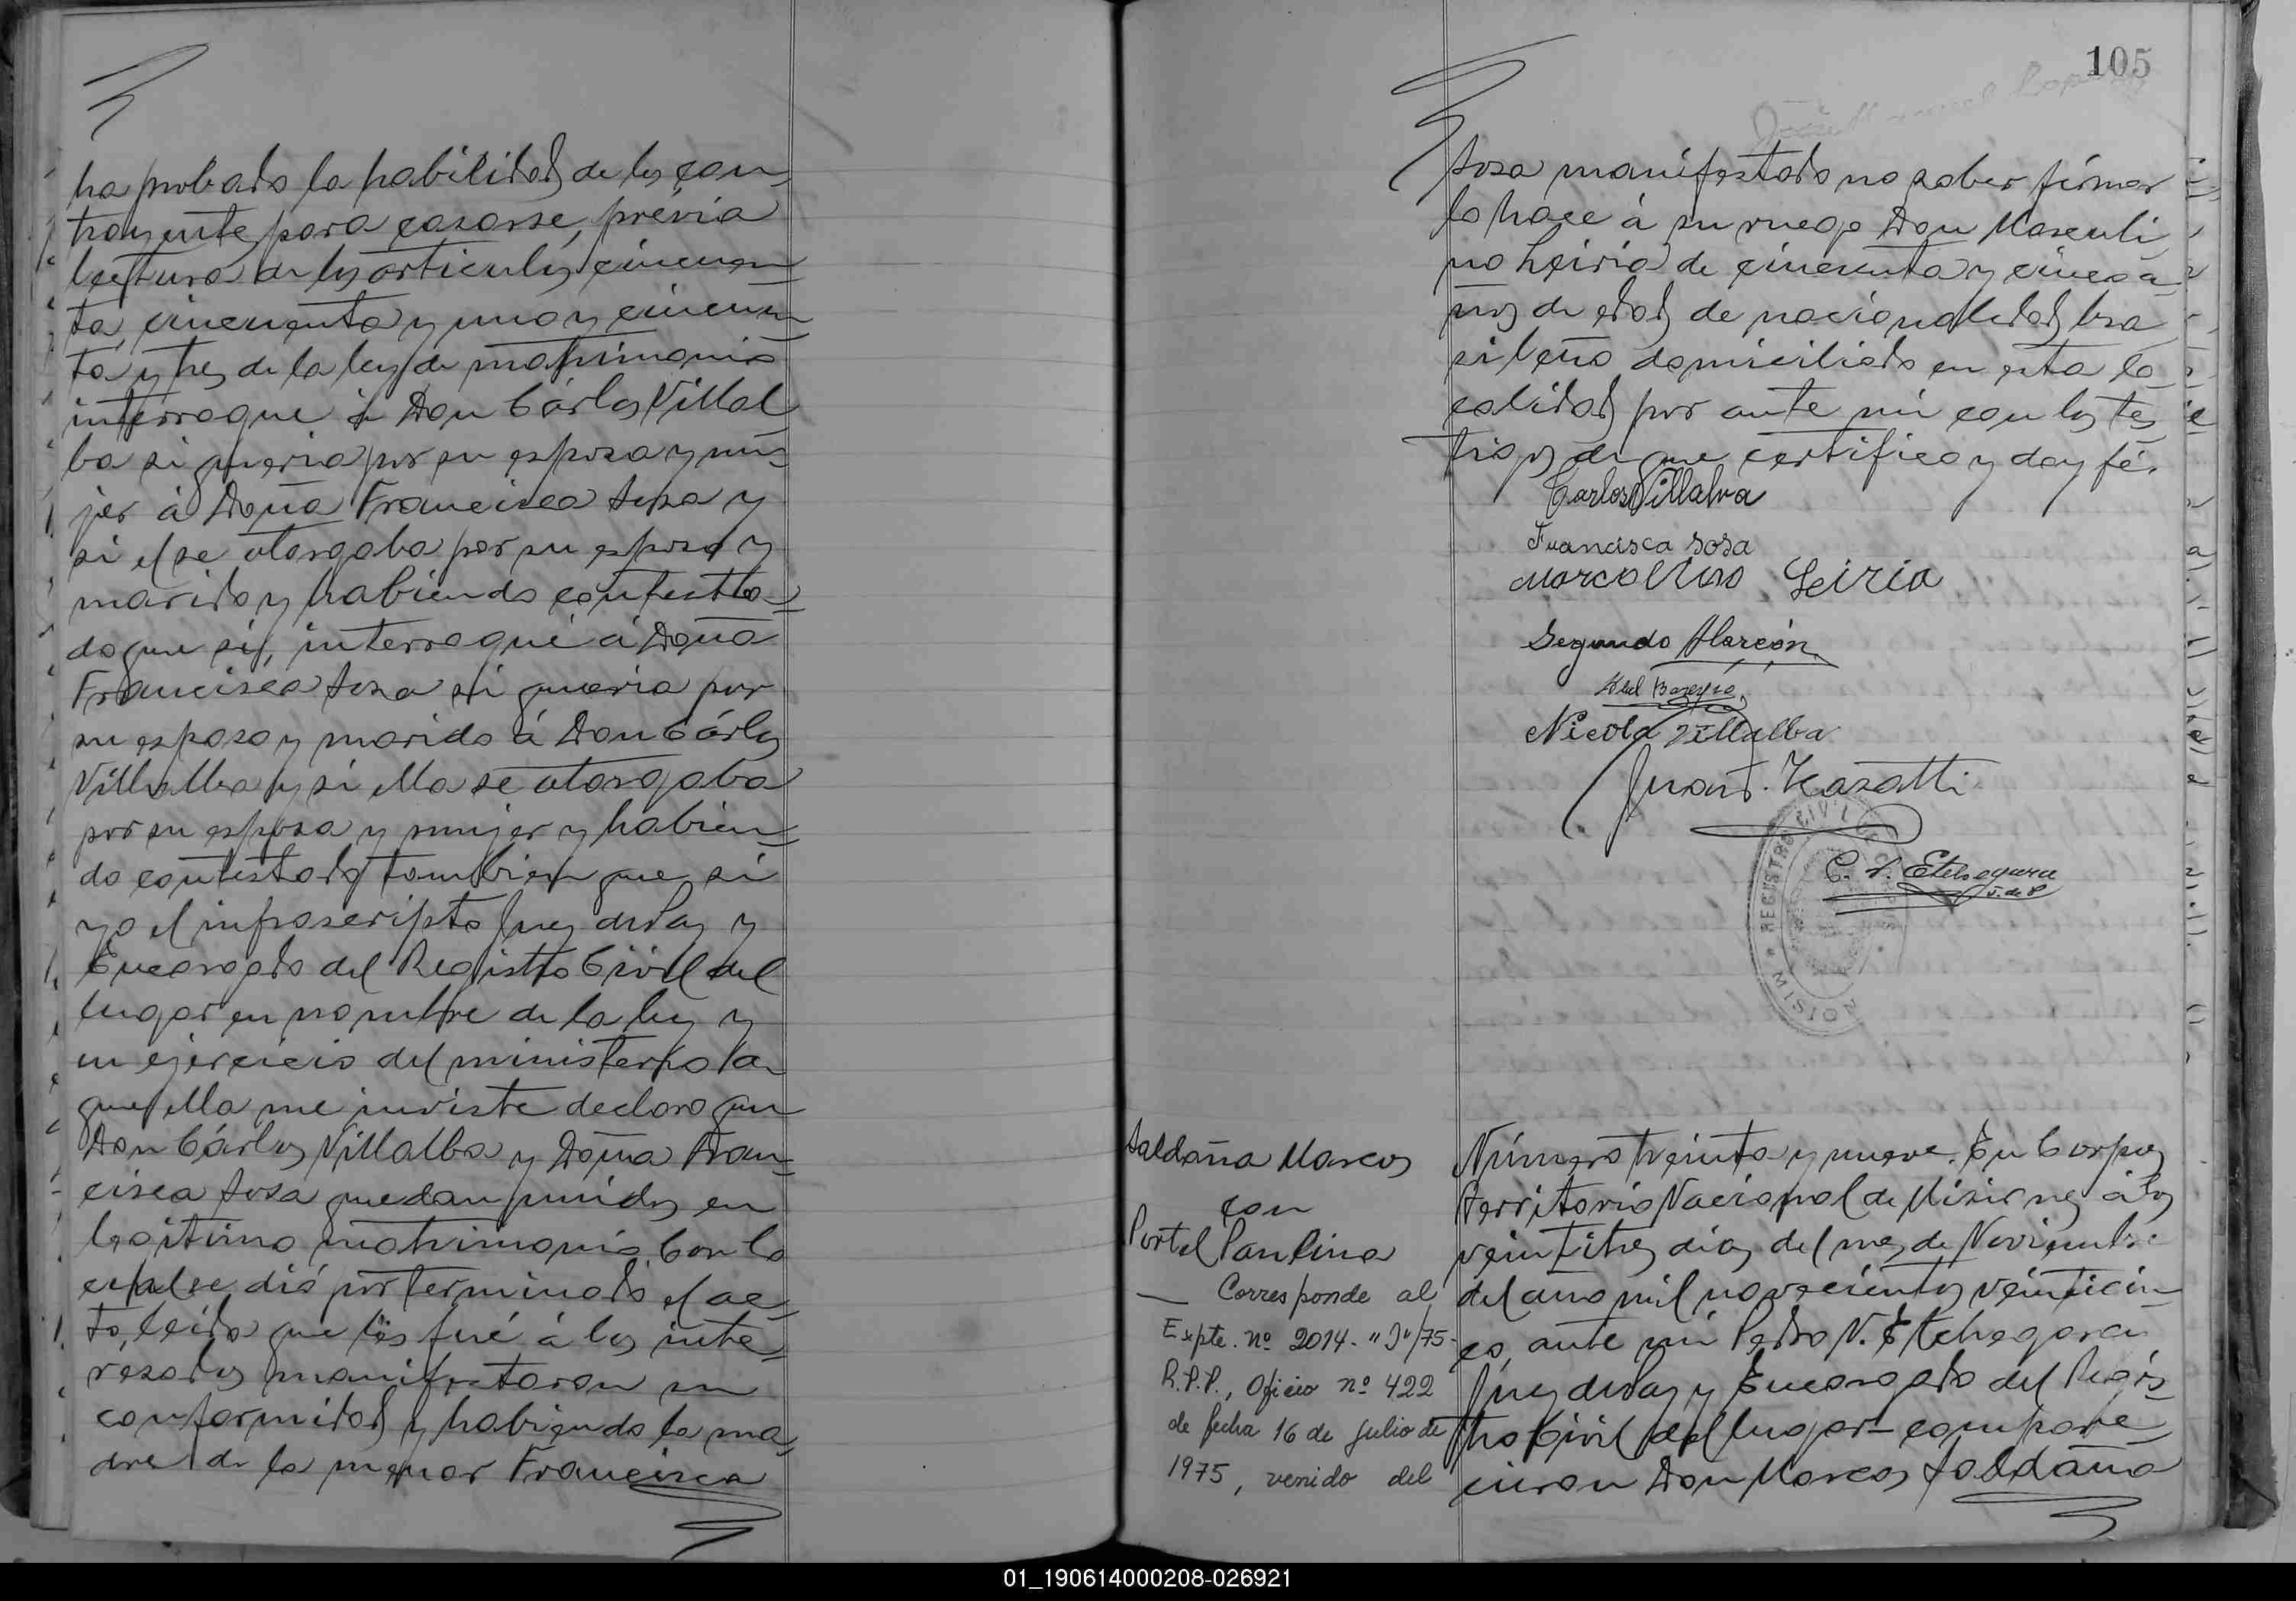 ha probado la habilidad de los con-
trayentes para casarse, prévia
lectura de los articulos cincuen-
ta, cincuenta y uno y cincuen-
ta y tres de la ley de matrimonio
interrogué á Don Cárlos Villal
ba si queria por su esposa y mu-
jer á Doña Francisca Sosa y
si el se otorgaba por su esposo y
marido y habiendo contesta-
do que sí, interrogué á Doña
Francisca Sosa si queria por
su esposo y marido á Don Cárlos
Villalba y si ella se otorgaba
por su esposa y mujer y habien-
do contestado tambien que sí
yo el infrascripto Juez de Paz y
Encargado del Registro Civil del
lugar en nombre de la ley y
en ejercicio del ministerio
que ella me inviste declaro que
Don Cárlos Villalba y Doña Fran-
cisca Sosa quedan unidos en
legítimo matrimonio Con lo
cual se dió por terminado el ac-
to, leida que les fué á los inte-
resados manifestaron su
conformidad y habiendo la ma-
dre de la menor Francisca
105
Sosa manifestado no saber firmar
lo hace á su ruego Don Marculi
no Leiria de cincuenta y cinco a-
ños de edad de nacionalidad bra
sileña domiciliado en esta lo
calidad por ante mí con los tes
tigos de que certifico y doy fé.
Carlos Villalva
Francisca Sosa
Marcolino Leiria
Segundo Alarcón
Nicola Villalba
Juan Kasatti
Etchegaray
J. de P.
REGISTRO CIVIL
MISIONES
Saldaña Marcos
con
Portel Paulina
Corresponde al
Expte. nº 2014- "J"/75-
R.P.P., Oficio nº 422
de fecha 16 de julio de
1975, venido del
Número treinta y nueve. En Corpus
Territorio Nacional de Misiones á los
veintitres dias del mes de Noviembre
del año mil novecientos veinticin-
co, ante mí Pedro N. Etchegaray
Juez de Paz y Encargado del Regis-
tro Civil del lugar compare-
cieron Don Marcos Saldaña
01_190614000208-026921